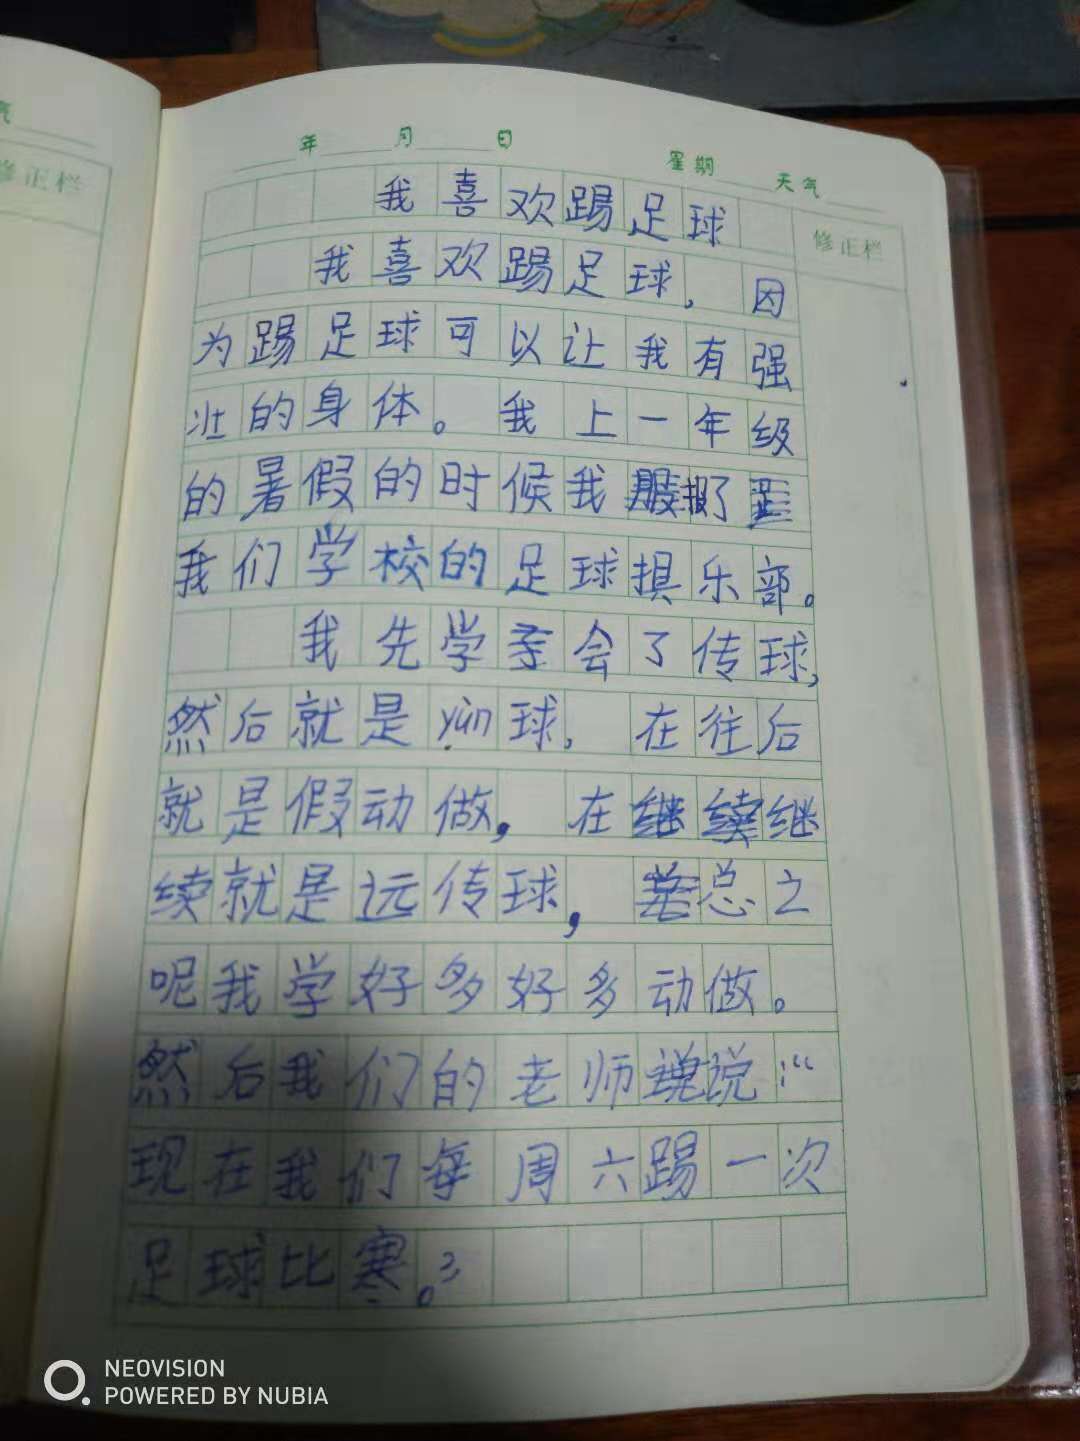 气
修正栏
年 月 日 星期 天气
修正栏
我喜欢踢足球
我喜欢踢足球,因
为踢足球可以让我有强
壮的身体。我上一年级
的暑假的时候我报了
我们学校的足球俱乐部。
我先学会了传球,
然后就是yùn球,在往后
就是假动做,在继
续就是远传球,总之
呢我学好多好多动做。
然后我们的老师说:“
现在我们每周六踢一次
足球比寒。”
NEOVISION
POWERED BY NUBIA